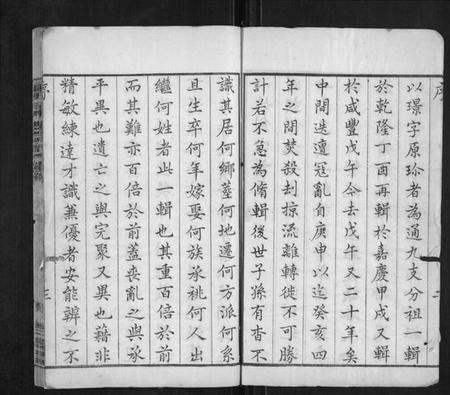 序
二
以璟字原珍者為通九支分祖一輯
於乾隆丁酉再輯於嘉慶甲戌又輯
於咸豐戊午今去戊午又二十年矣
中間迭遭寇亂自庚申以迄癸亥四
年之間焚殺刦掠流離轉徙不可勝
計若不急為脩輯後世子孫有杳不
識其居何鄉塟何地遷何方派何系
且生卒何年嫁娶何族承祧何人出
繼何姓者此一輯也其重百倍於前
而其難亦百倍於前蓋喪亂之與承
平異也遺亡之與完聚又異也藉非
精敏練達才識兼優者安能辦之不
序
三